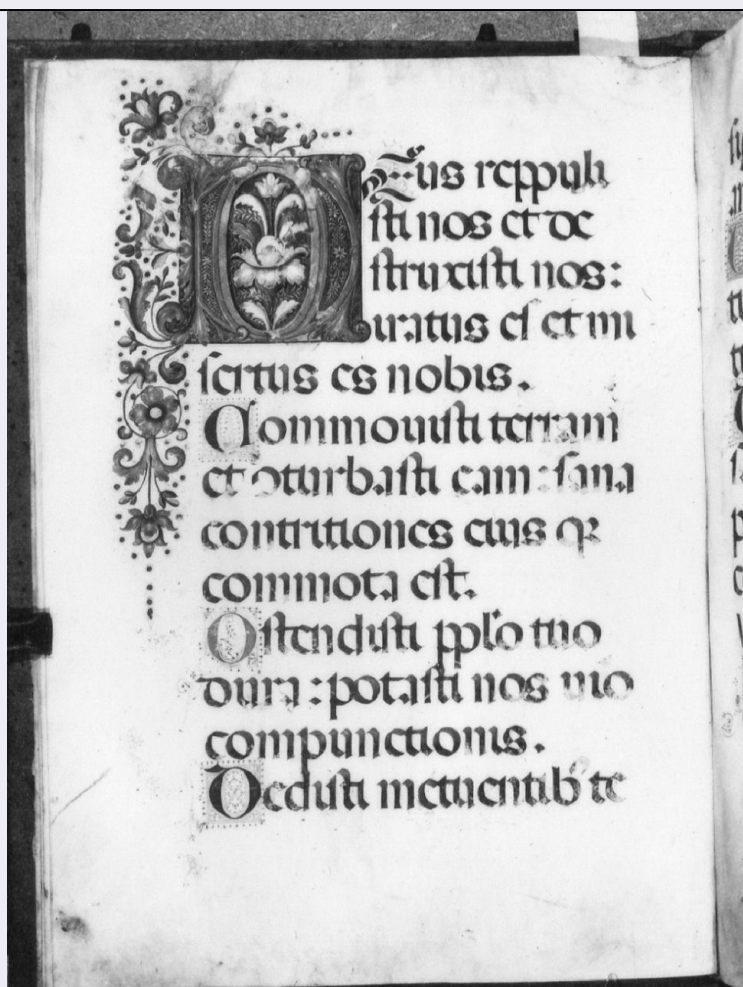 Deus reppuli
sti nos et de
struxisti nos:
iratus es et mi
sertus es nobis.
Commouisti terram
et ꝯturbasti eam: sana
contritiones eius qꝛ
commota est.
Ostendisti pplo tuo
dura: potasti nos uino
compunctionis.
Dedisti metuentib te